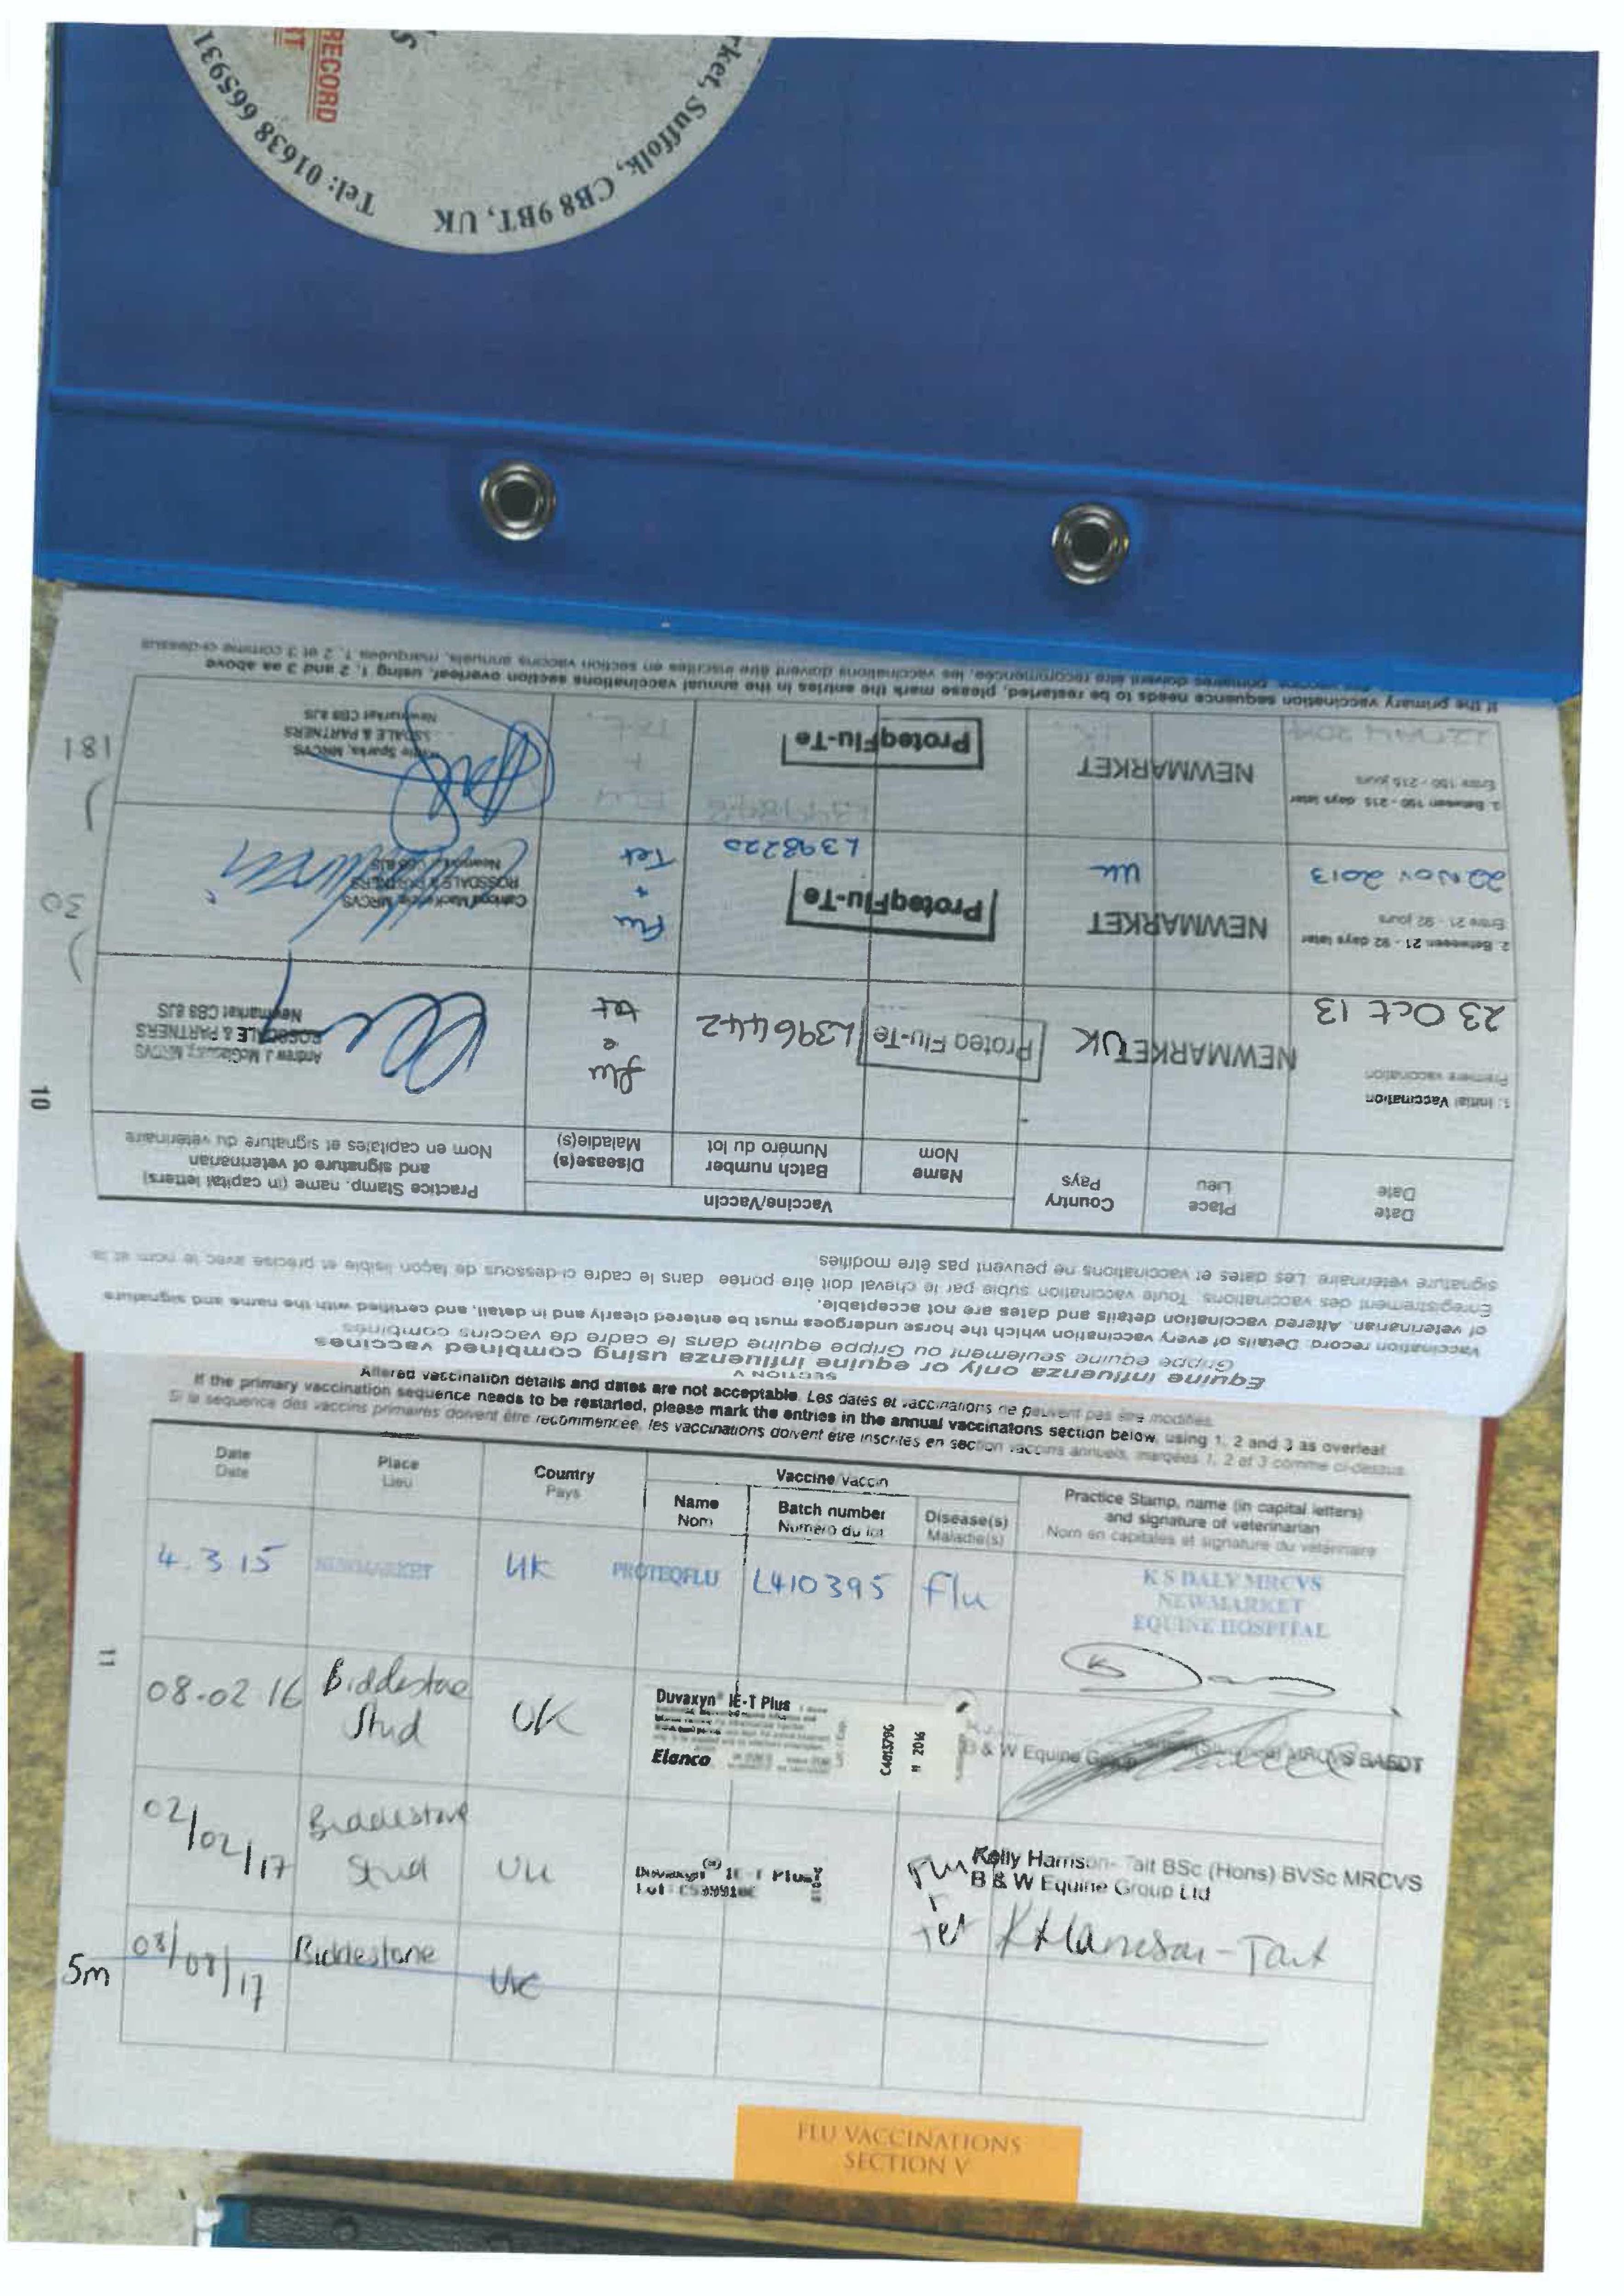 RECORD
Tel: 01638 665931
rket, Suffolk, CB8 9BT, UK
SECTION V
Equine influenza only or equine influenza using combined vaccines
Grippe équine seulement ou Grippe équine dans le cadre de vaccins combinés
Vaccination record. Details of every vaccination which the horse undergoes must be entered clearly and in detail, and certified with the name and signature
of veterinarian. Altered vaccination details and dates are not acceptable.
Enregistrement des vaccinations. Toute vaccination subie par le cheval doit être portée dans le cadre ci-dessous de façon lisible et précise avec le nom et la
signature vétérinaire. Les dates et vaccinations ne peuvent pas être modifiés
Date
Date
Place
Lieu
Country
Pays
Vaccine/Vaccin
Name
Nom
Batch number
Numéro du lot
Disease(s)
Maladie(s)
Practice Stamp, name (in capital letters)
and signature of veterinarian
Nom en capitales et signature du vétérinaire
10
1. Initial Vaccination
Première vaccination
23 Oct 13
NEWMARKET UK
Proteq Flu-Te L396442
flu
e
tet
ROSSDALE & PARTNERS
Newmarket CB8 8JS
2. Between 21 - 92 days later
Entre 21 - 92 jours
22 NOV 2013
NEWMARKET
UK
ProteqFlu-Te
L398220
Flu
+
Tet
ROSSDALES & PARTNERS
30
3. Between 150 - 215 days later
Entre 150 - 215 jours
NEWMARKET
ProteqFlu-Te
Sparks, MRCVS
SSDALE & PARTNERS
Newmarket CB8 8JS
181
If the primary vaccination sequence needs to be restarted, please mark the entries in the annual vaccinations section overleaf, using 1, 2 and 3 as above
doivent être recommencée, les vaccinations doivent être inscrites en section vaccins annuels, marquées 1, 2 et 3 comme ci-dessus
Altered vaccination details and dates are not acceptable. Les dates et vaccinations ne peuvent pas être modifiés
If the primary vaccination sequence needs to be restarted, please mark the entries in the annual vaccinatons section below, using 1, 2 and 3 as overleaf
Si la sequence des vaccins primaires doivent être recommencée, les vaccinations doivent être inscrites en section vaccins annuels, marqées 1, 2 et 3 comme ci-dessus
Date
Date
Place
Lieu
Country
Pays
Vaccine/Vaccin
Name
Nom
Batch number
Numéro du lot
Disease(s)
Maladie(s)
Practice Stamp, name (in capital letters)
and signature of veterinarian
Nom en capitales et signature du vétérinaire
4.3.15 NEWMARKET UK PROTEQFLU L410395 Flu
K S DALY MRCVS
NEWMARKET
EQUINE HOSPITAL
11
08.02 16 Biddestone
Stud
UK
Duvaxyn® IE-T Plus
Elanco
C401379C
11 2016
B & W Equine Group
MRCVS BAEDT
02/02/17
Biddestone
Stud
UK
Duvaxyn IE-T Plus
Flu
Tet
Kelly Harrison-Tait BSc (Hons) BVSc MRCVS
B & W Equine Group Ltd
KHarrison-Tait
5m
08/08/17
Biddestone
UK
FLU VACCINATIONS
SECTION V